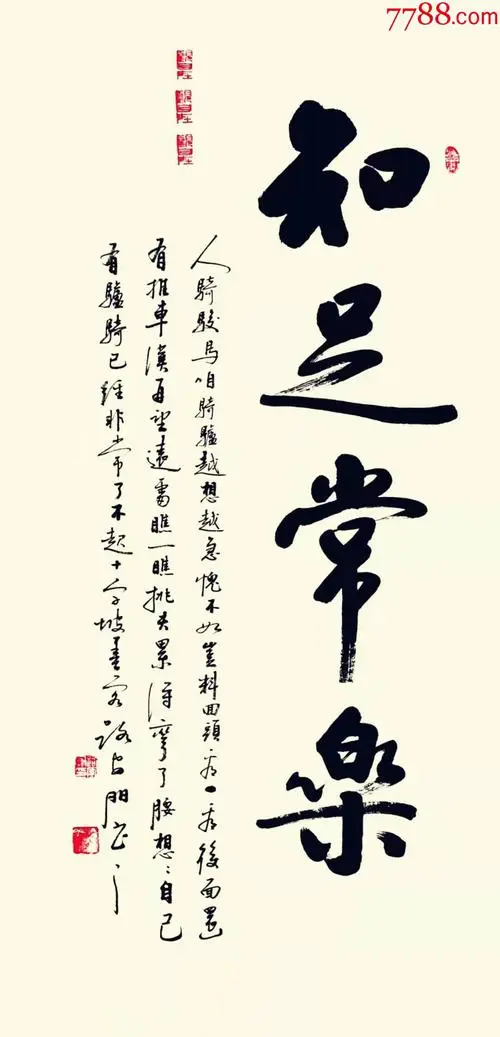 7788.com
知足常樂
人騎駿馬咱騎驢越想越急愧不如豈料回頭看一看後面還
有推車漢再望遠處瞧一瞧挑夫累得彎了腰想〻自己
有驢騎已經非常了不起十字坡